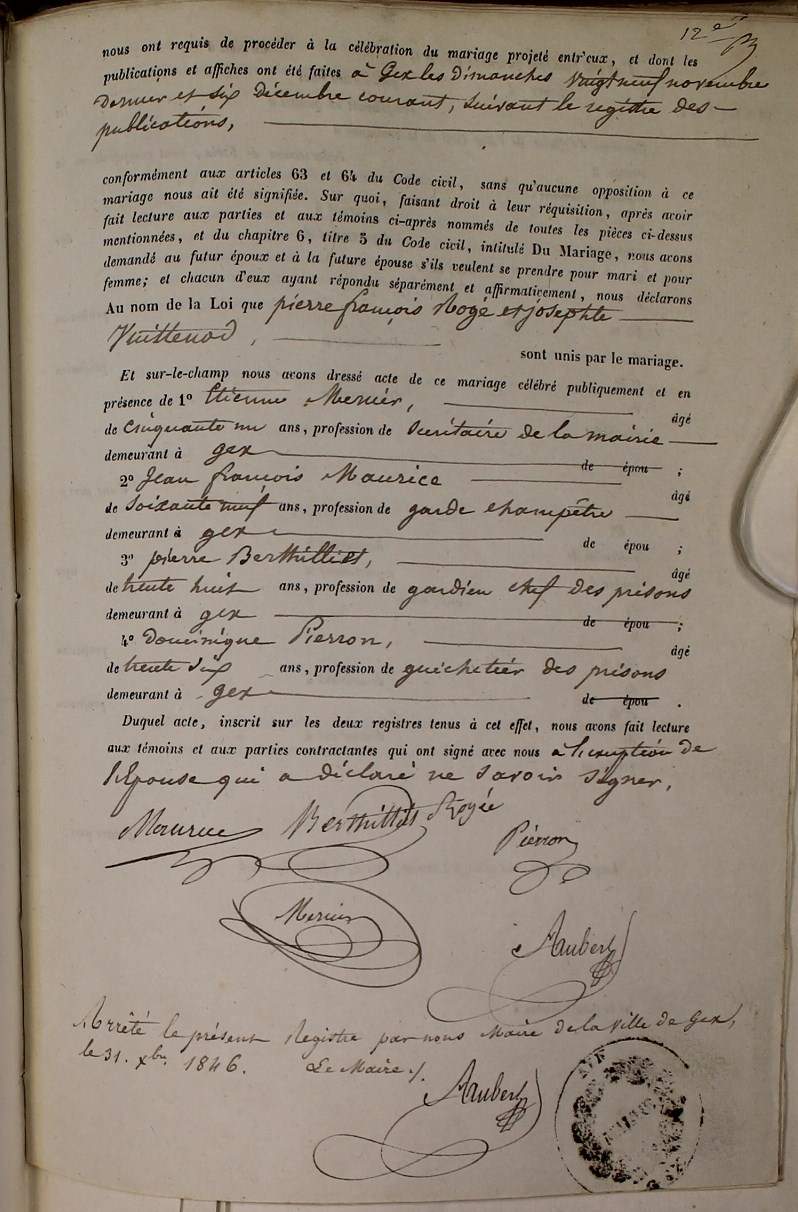 12e
nous ont requis de procéder à la célébration du mariage projeté entr'eux, et dont les
publications et affiches ont été faites à Gex les Dimanches vingt neuf novembre
Dernier et six Décembre courant, suivant le registre des
publications,
conformément aux articles 63 et 64 du Code civil, sans qu'aucune opposition à ce
mariage nous ait été signifiée. Sur quoi, faisant droit à leur réquisition, après avoir
fait lecture aux parties et aux témoins ci-après nommés de toutes les pièces ci-dessus
mentionnées, et du chapitre 6, titre 5 du Code civil, intitulé Du Mariage, nous avons
demandé au futur époux et à la future épouse s'ils veulent se prendre pour mari et pour
femme; et chacun d'eux ayant répondu séparément et affirmativement, nous déclarons
Au nom de la Loi que pierre françois Rogé et josephte
Vuittenod,
sont unis par le mariage.
Et sur-le-champ nous avons dressé acte de ce mariage célébré publiquement et en
présence de 1º Etienne Mercier, âgé
de Cinquante un ans, profession de Secrétaire de la mairie
demeurant à gex de épou ;
2º Jean françois Maurice âgé
de Soixante neuf ans, profession de garde champêtre
demeurant à gex de épou ;
3º pierre Berthilliet, âgé
de trente huit ans, profession de gardien chef des prisons
demeurant à gex de épou ;
4º Dominique Pierron, âgé
de trente six ans, profession de guichetier des prisons
demeurant à gex de épou .
Duquel acte, inscrit sur les deux registres tenus à cet effet, nous avons fait lecture
aux témoins et aux parties contractantes qui ont signé avec nous à l'exception de
l'Epouse qui a déclaré ne savoir signer.
Maurice Berthillet Rogée Piérron
Mercier Aubert
Arrêté le présent Registre par nous Maire de la Ville de Gex,
le 31. xbre 1846. Le Maire
Aubert